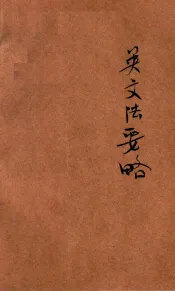 英文法要略